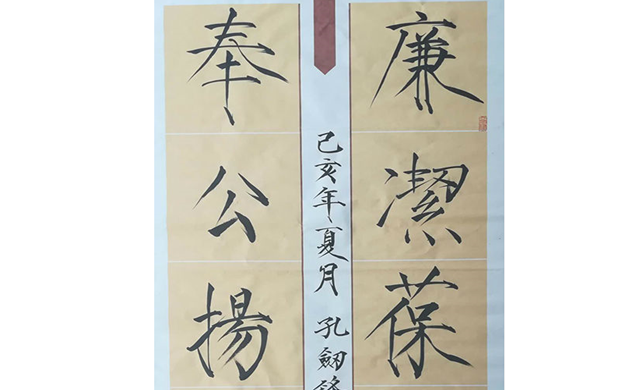 廉潔葆
己亥年夏月 孔劔
奉公揚